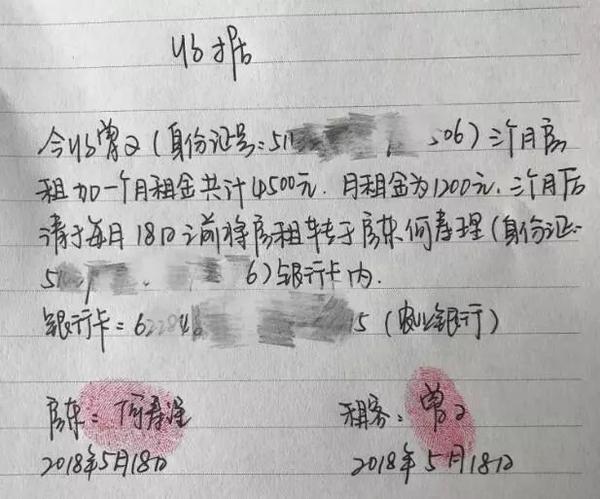 收据
今收曾文(身份证号:51 506)三个月房
租加一个月租金共计4500元.月租金为1200元.三个月后
请于每月18日之前将房租转于房东何春理(身份证:
51 6)银行卡内.
银行卡:622848 5(农业银行)
房东:何春理 租客:曾文
2018年5月18日 2018年5月18日